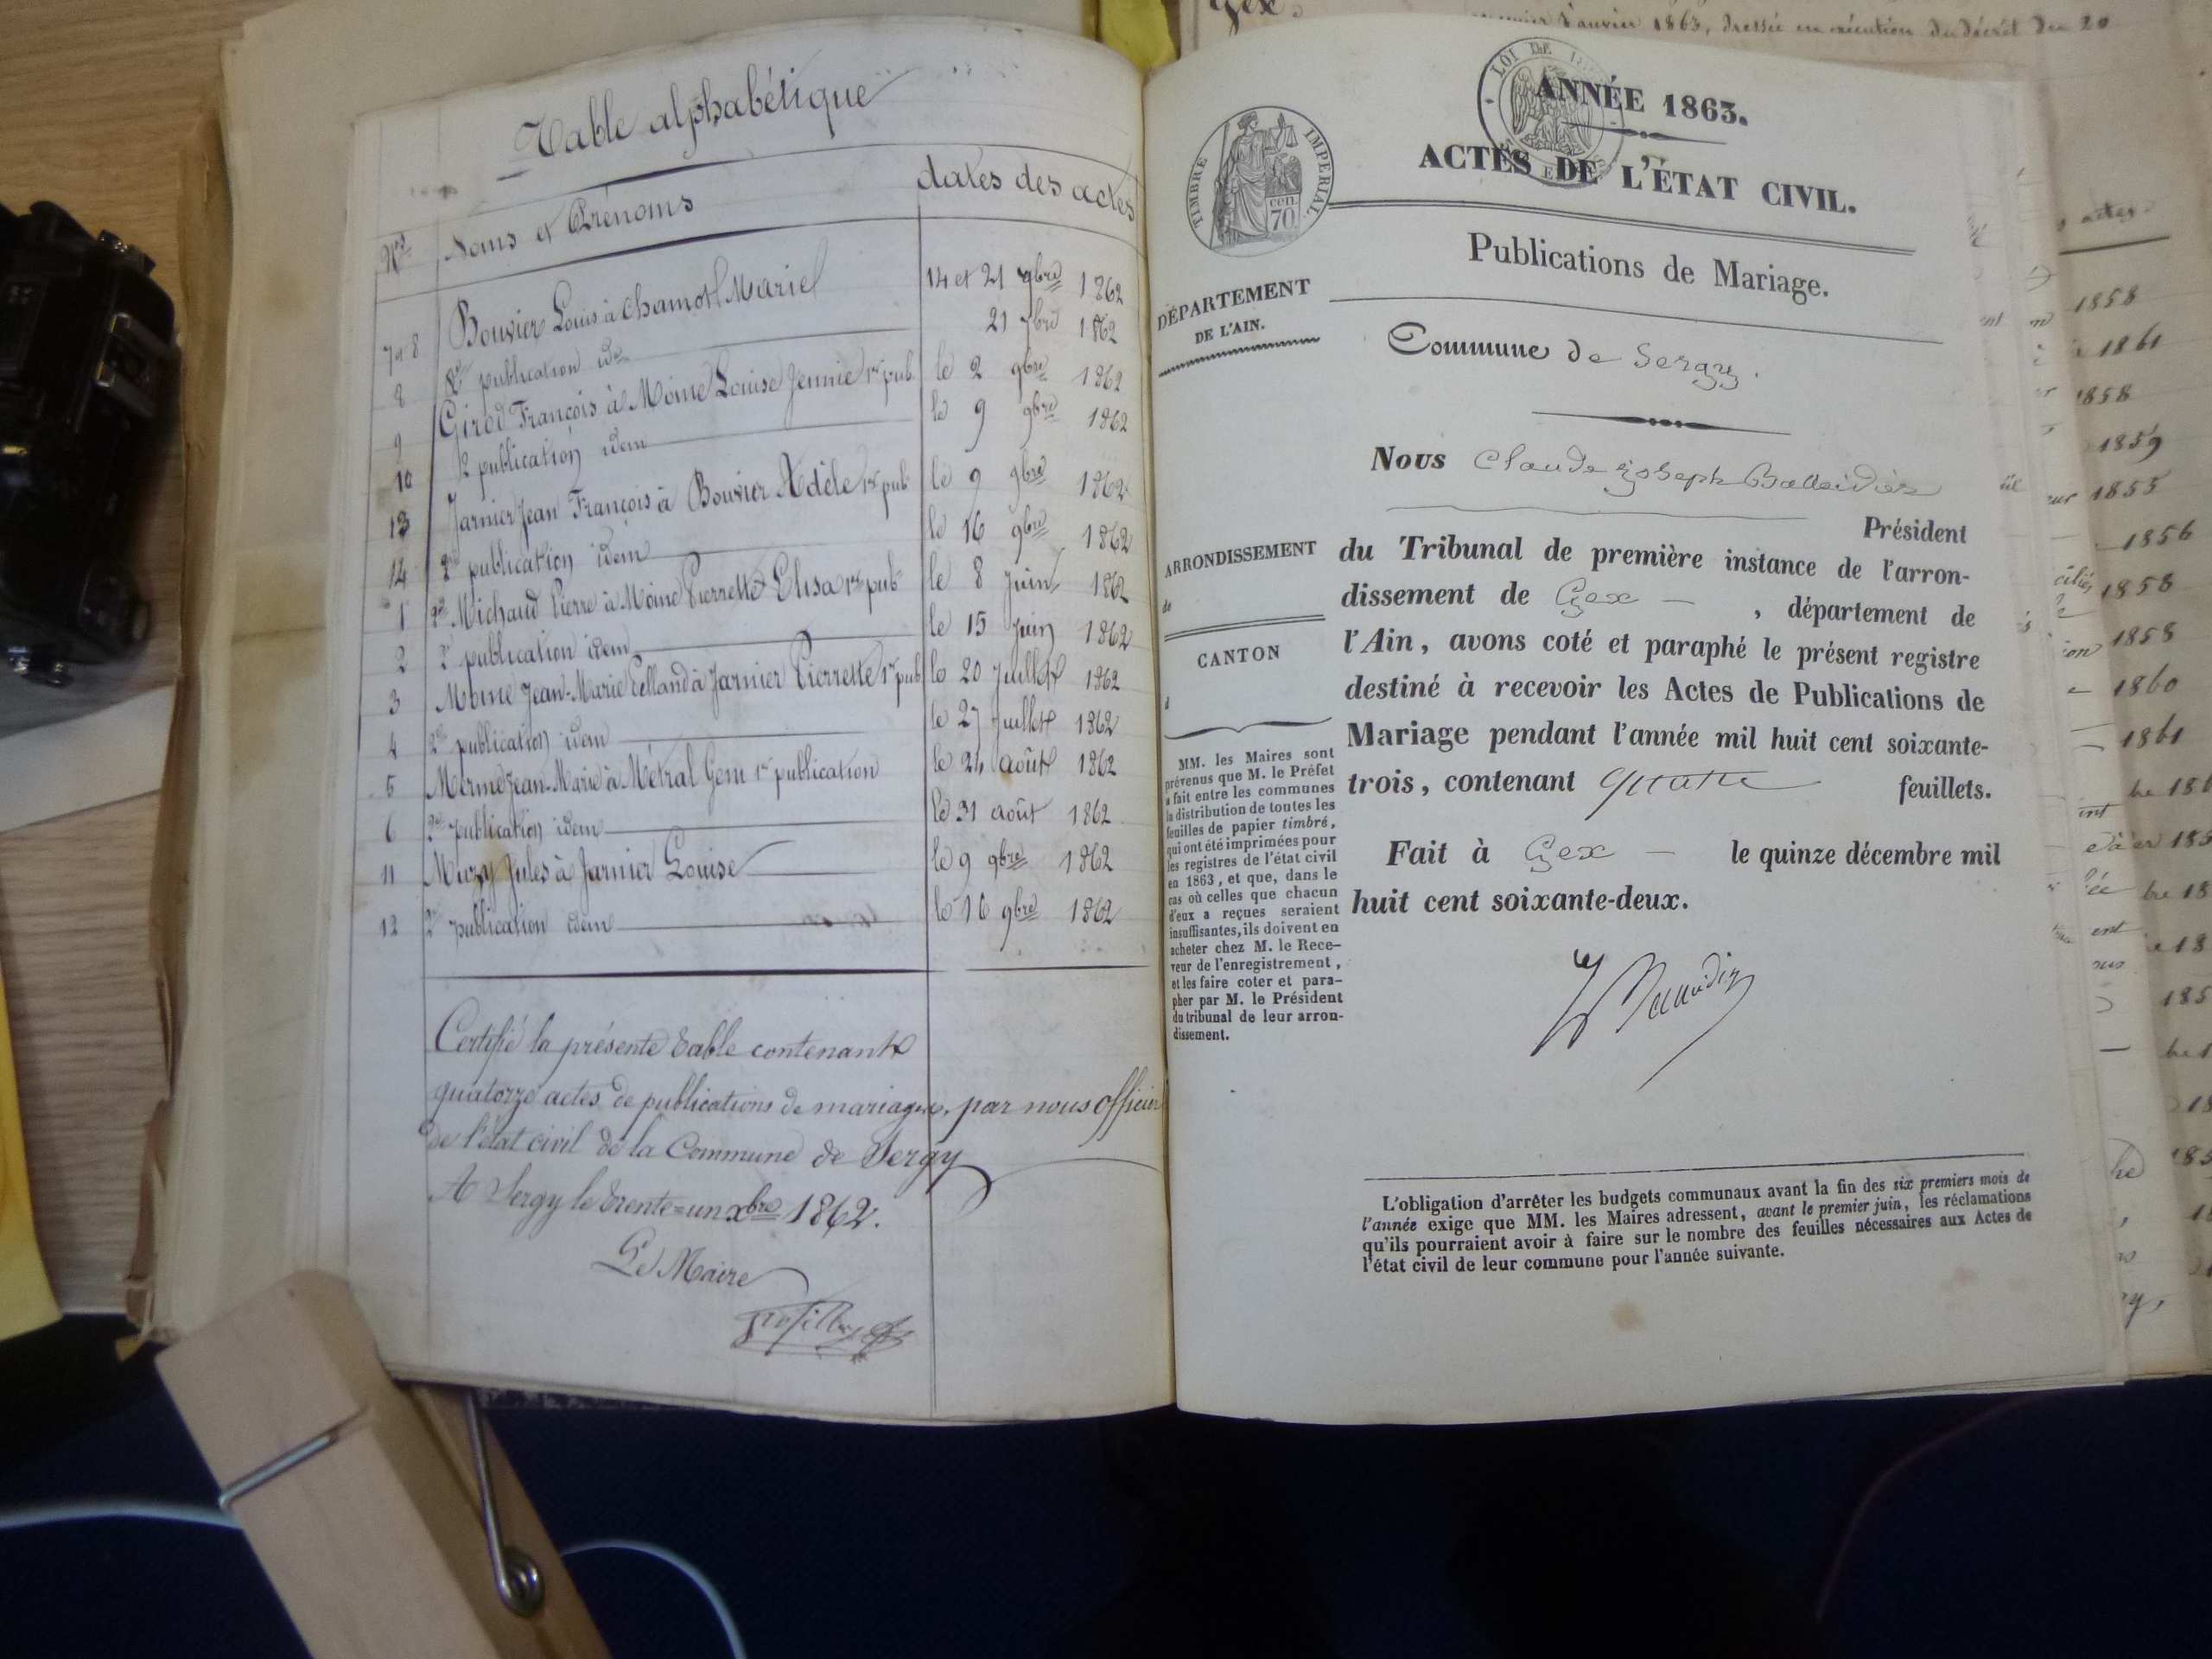 Table alphabétique
Nos Noms et Prénoms dates des actes
7 et 8 Bouvier Louis à Chamot Marie 14 et 21 7bre 1862
8 2e publication id 21 7bre 1862
9 Girod François à Moine Louise Jennie 1re pub. le 2 9bre 1862
10 2e publication idem le 9 9bre 1862
13 Jarnier Jean François à Bouvier Adèle 1re pub. le 9 9bre 1862
14 2e publication idem le 16 9bre 1862
1 Michaud Pierre à Moine Pierrette Elisa 1re pub. le 8 Juin 1862
2 2e publication idem le 15 Juin 1862
3 Moine Jean-Marie à Jarnier Pierrette 1re pub le 20 Juillet 1862
4 2e publication idem le 27 Juillet 1862
5 Jean-Marie à Métral 1re publication le 24 août 1862
6 2e publication idem le 31 août 1862
11 Jules à Jarnier Louise le 9 9bre 1862
12 2e publication idem le 16 9bre 1862
Certifié la présente table contenant
quatorze actes de publications de mariages, par nous officier
de l'état civil de la Commune de Sergy
A Sergy le trente=un xbre 1862.
Le Maire
Gex.
Janvier 1863, dressée en exécution du décret du 20
ANNÉE 1863.
ACTES DE L'ÉTAT CIVIL.
TIMBRE IMPERIAL
cen.
70
LOI DE
Publications de Mariage.
DÉPARTEMENT
DE L'AIN.
Commune de Sergy.
Nous Claude Joseph
Président
ARRONDISSEMENT
de
CANTON
d
du Tribunal de première instance de l'arron-
dissement de Gex — , département de
l'Ain, avons coté et paraphé le présent registre
destiné à recevoir les Actes de Publications de
Mariage pendant l'année mil huit cent soixante-
trois, contenant quatre feuillets.
Fait à Gex — le quinze décembre mil
huit cent soixante-deux.
MM. les Maires sont
prévenus que M. le Préfet
a fait entre les communes
la distribution de toutes les
feuilles de papier timbré,
qui ont été imprimées pour
les registres de l'état civil
en 1863, et que, dans le
cas où celles que chacun
d'eux a reçues seraient
insuffisantes, ils doivent en
acheter chez M. le Rece-
veur de l'enregistrement,
et les faire coter et para-
pher par M. le Président
du tribunal de leur arron-
dissement.
L'obligation d'arrêter les budgets communaux avant la fin des six premiers mois de
l'année exige que MM. les Maires adressent, avant le premier juin, les réclamations
qu'ils pourraient avoir à faire sur le nombre des feuilles nécessaires aux Actes de
l'état civil de leur commune pour l'année suivante.
actes.
1858
1861
1858
1859
1855
1856
1858
1858
1860
1861